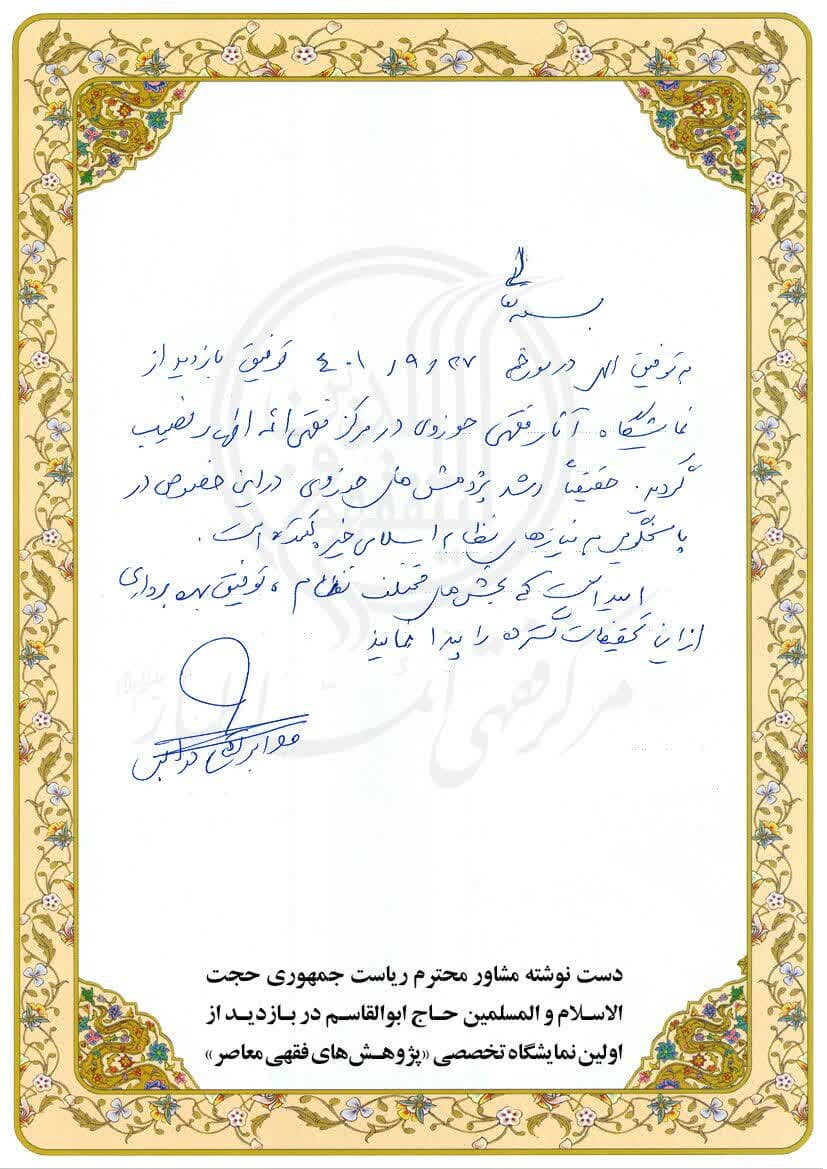 بسمه تعالی
به توفیق الهی در مورخه ۴۰۱/۹/۲۷ توفیق بازدید از
نمایشگاه آثار فقهی حوزوی در مرکز فقهی ائمه اطهار نصیب
گردید. حقیقتاً رشد پژوهش های حوزوی در این خصوص در
پاسخگویی به نیازهای نظام اسلامی خیره کننده است.
امید است که بخش های مختلف نظام، توفیق بهره برداری
از این تحقیقات گسترده را پیدا نمایند
مرکز فقهی ائمه اطهار
دست نوشته مشاور محترم ریاست جمهوری حجت
الاسلام و المسلمین حاج ابوالقاسم در بازدید از
اولین نمایشگاه تخصصی «پژوهش‌های فقهی معاصر»